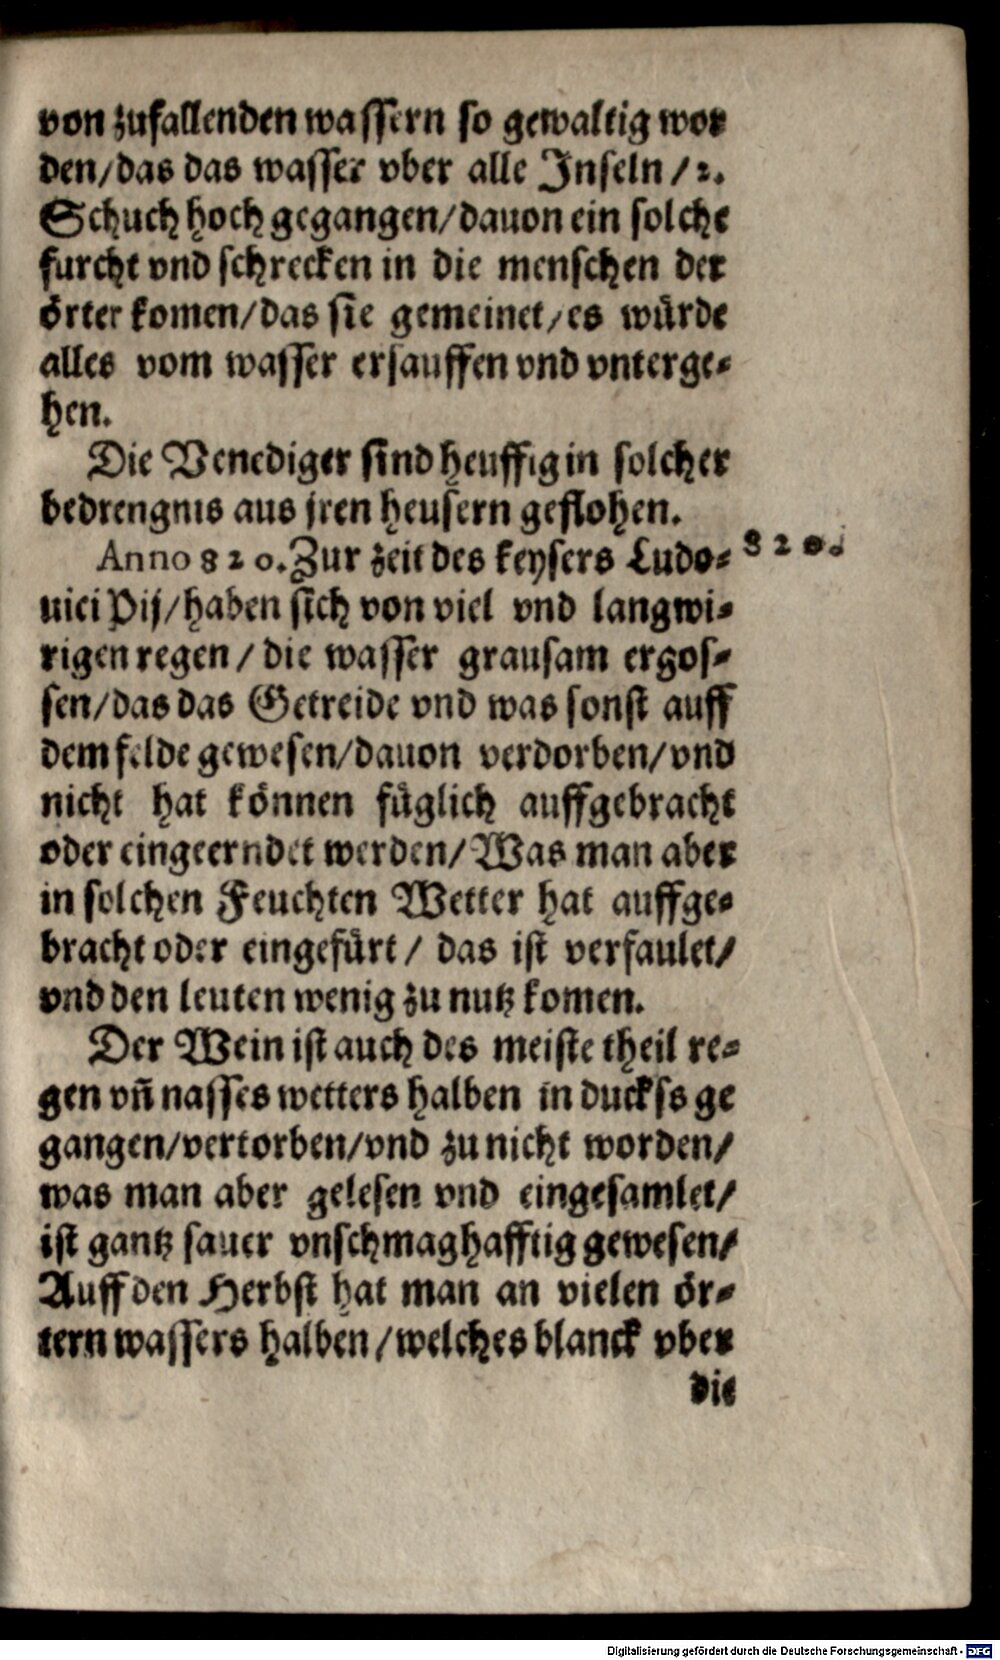 von zufallenden wassern so gewaltig wor
den/das das wasser vber alle Inseln/2.
Schuch hoch gegangen/dauon ein solche
furcht vnd schrecken in die menschen der
örter komen/das sie gemeinet/es würde
alles vom wasser ersauffen vnd vnterge-
hen.
Die Venediger sind heuffig in solcher
bedrengnis aus jren heusern geflohen.
Anno 820. Zur zeit des keysers Ludo-
820.
uici Pij/haben sich von viel vnd langwi-
rigen regen/die wasser grausam ergos-
sen/das das Getreide vnd was sonst auff
dem felde gewesen/dauon verdorben/vnd
nicht hat können füglich auffgebracht
oder eingeerndet werden/Was man aber
in solchen Feuchten Wetter hat auffge-
bracht oder eingefürt/das ist verfaulet/
vnd den leuten wenig zu nutz komen.
Der Wein ist auch des meiste theil re-
gen vñ nasses wetters halben in duckss ge
gangen/vertorben/vnd zu nicht worden/
was man aber gelesen vnd eingesamlet/
ist gantz sauer vnschmaghafftig gewesen/
Auff den Herbst hat man an vielen ör-
tern wassers halben/welches blanck vber
die
Digitalisierung gefördert durch die Deutsche Forschungsgemeinschaft - DFG